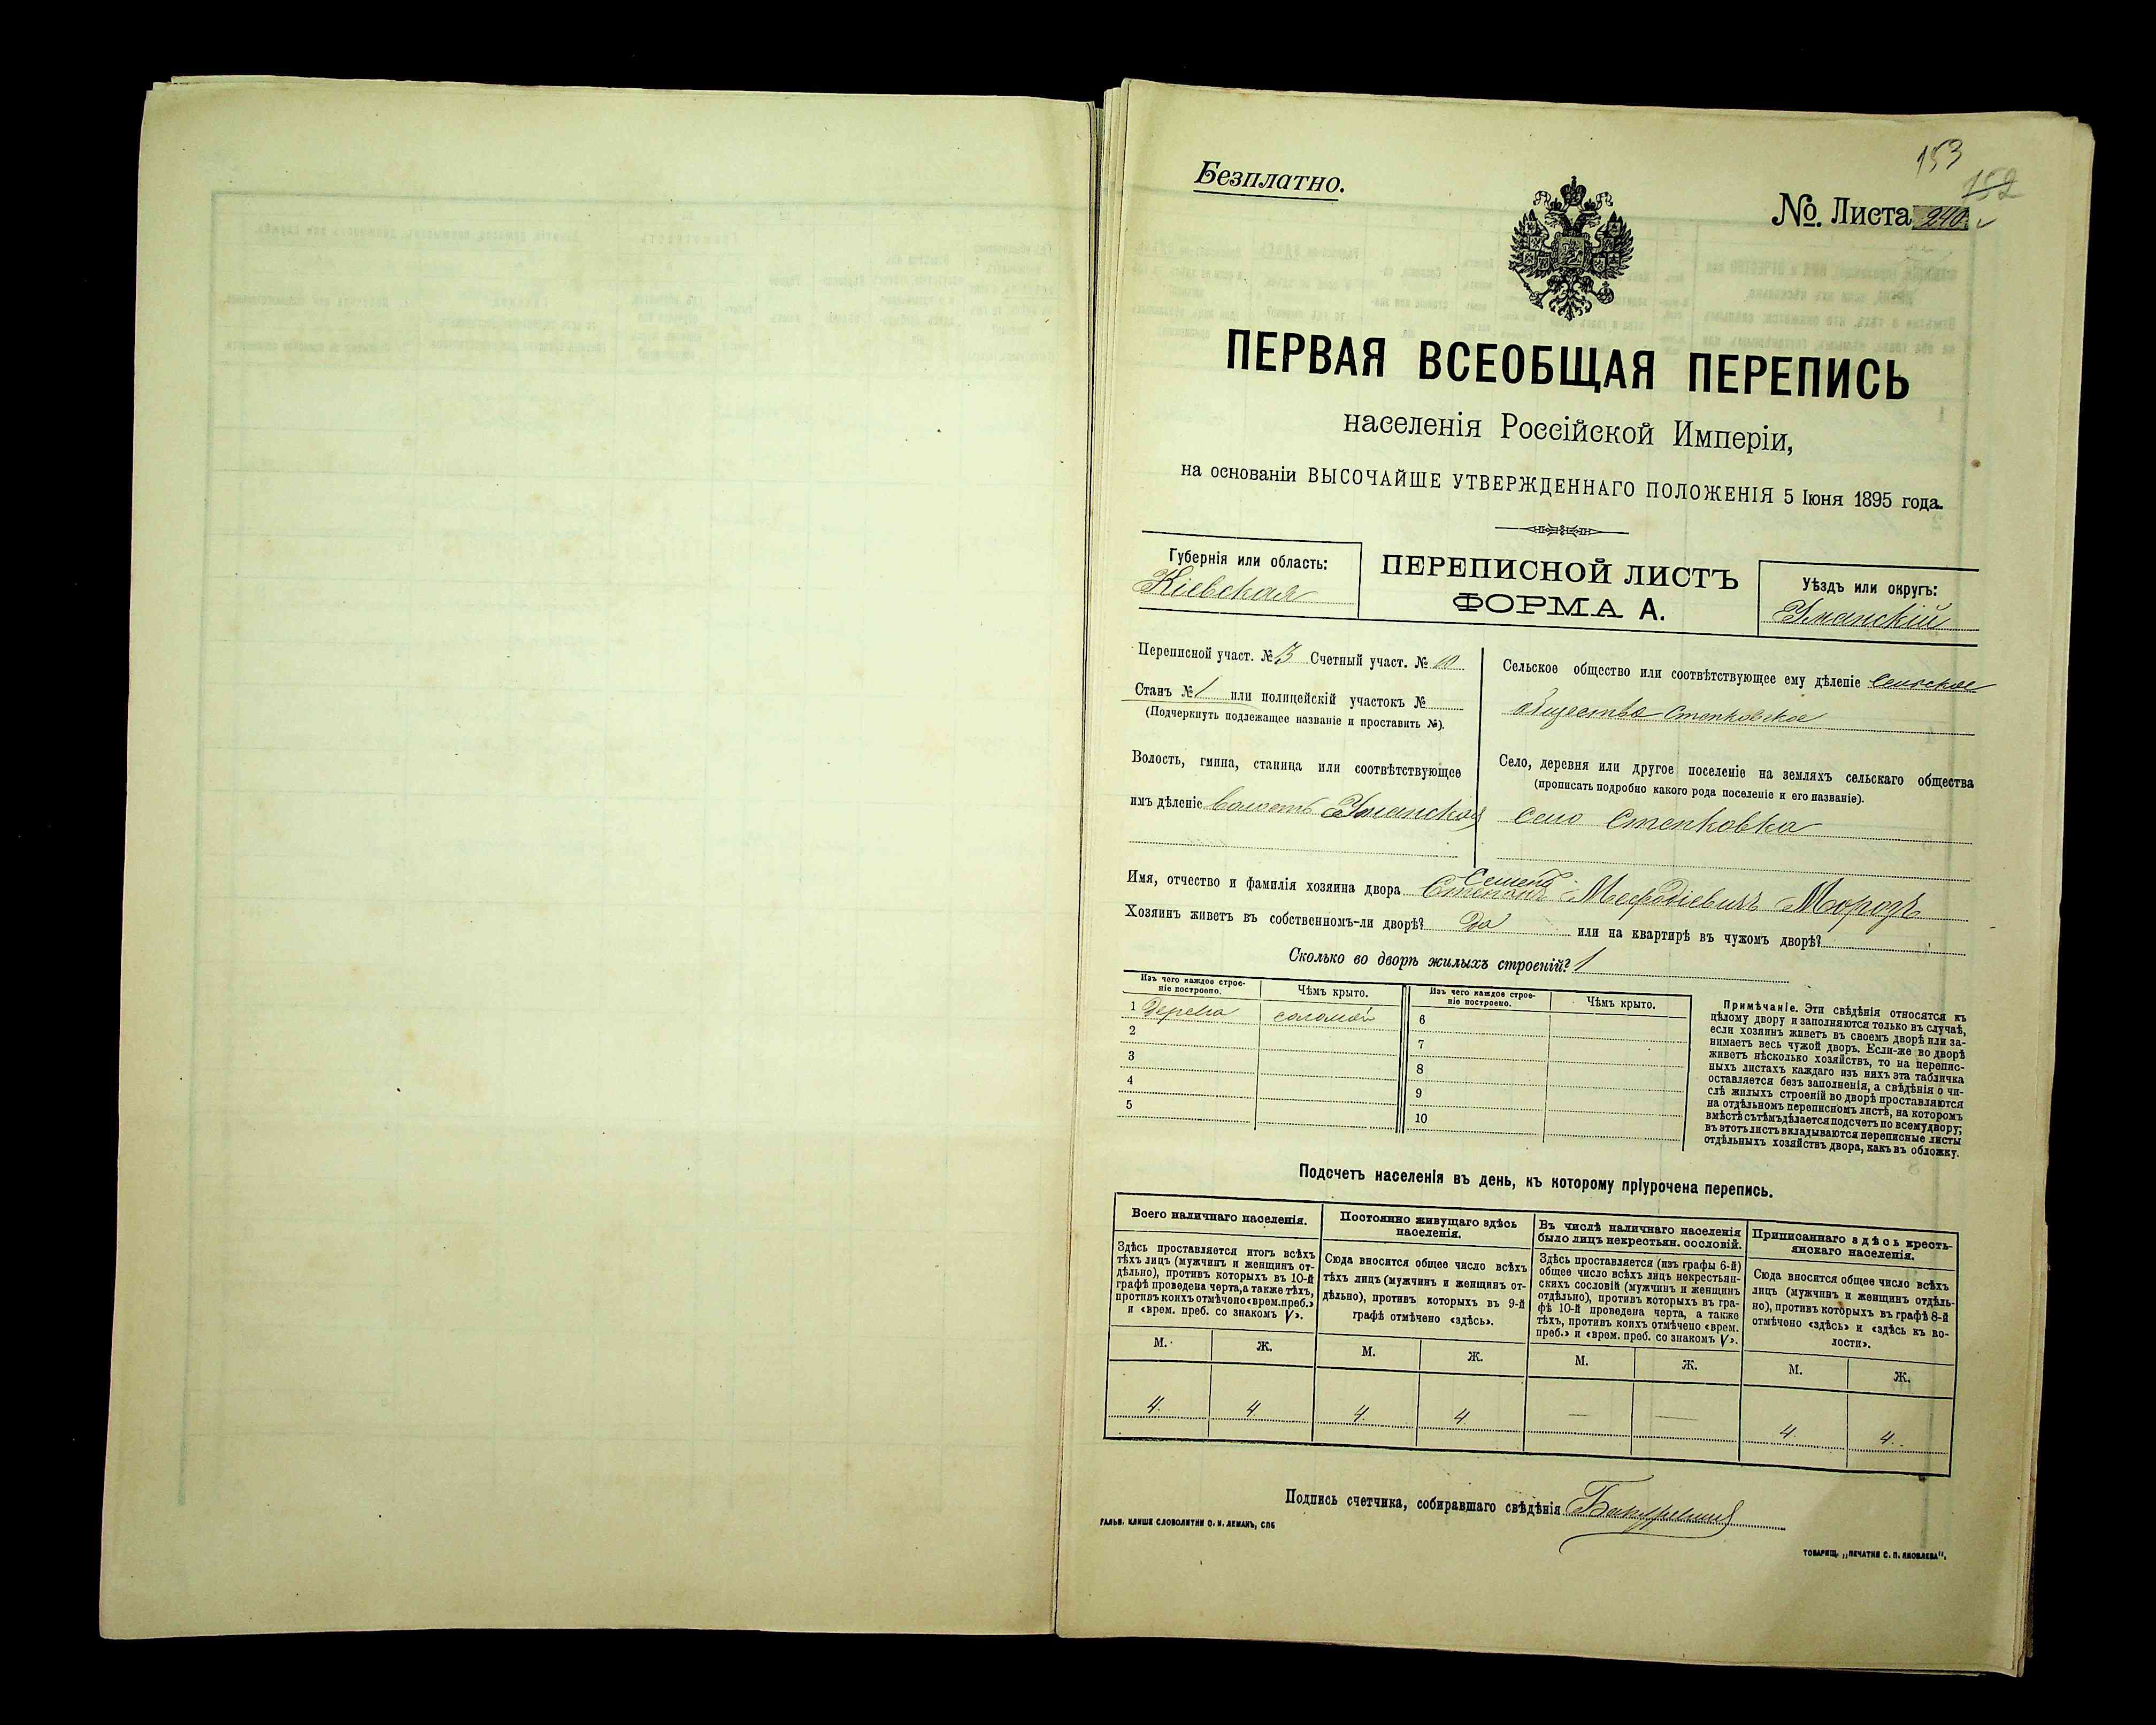 153
152
Безплатно.
№. Листа 240
ПЕРВАЯ ВСЕОБЩАЯ ПЕРЕПИСЬ
населенія Россійской Имперіи,
на основаніи ВЫСОЧАЙШЕ УТВЕРЖДЕННАГО ПОЛОЖЕНІЯ 5 Іюня 1895 года.
Губернія или область:
Кіевская
ПЕРЕПИСНОЙ ЛИСТЪ
ФОРМА А.
Уѣздъ или округъ:
Уманскій
Переписной участ. № 3 Счетный участ. № 10
Станъ № 1 или полицейскій участокъ №
(Подчеркнуть подлежащее названіе и проставить №).
Волость, гмина, станица или соотвѣтствующее
имъ дѣленіе волость Уманская
Сельское общество или соотвѣтствующее ему дѣленіе Сельское
общество Степковское
Село, деревня или другое поселеніе на земляхъ сельскаго общества
(прописать подробно какого рода поселеніе и его названіе).
село Степковка
Семенъ
Имя, отчество и фамилія хозяина двора Степанъ Мефодіевичъ Морозъ
Хозяинъ живетъ въ собственномъ-ли дворѣ? Да или на квартирѣ въ чужомъ дворѣ?
Сколько во дворѣ жилыхъ строеній? 1
Изъ чего каждое строе-
ніе построено.
Чѣмъ крыто.
Изъ чего каждое строе-
ніе построено.
Чѣмъ крыто.
1 Дерева соломой 6
2 7
3 8
4 9
5 10
Примѣчаніе. Эти свѣдѣнія относятся къ
цѣлому двору и заполняются только въ случаѣ,
если хозяинъ живетъ въ своемъ дворѣ или за-
нимаетъ весь чужой дворъ. Если-же во дворѣ
живетъ нѣсколько хозяйствъ, то на перепис-
ныхъ листахъ каждаго изъ нихъ эта табличка
оставляется безъ заполненія, а свѣдѣнія о чи-
слѣ жилыхъ строеній во дворѣ проставляются
на отдѣльномъ переписномъ листѣ, на которомъ
вмѣстѣ съ тѣмъ дѣлается подсчетъ по всему двору;
въ этотъ листъ вкладываются переписные листы
отдѣльныхъ хозяйствъ двора, какъ въ обложку.
Подсчетъ населенія въ день, къ которому пріурочена перепись.
Всего наличнаго населенія.
Здѣсь проставляется итогъ всѣхъ
тѣхъ лицъ (мужчинъ и женщинъ от-
дѣльно), противъ которыхъ въ 10-й
графѣ проведена черта, а также тѣхъ,
противъ коихъ отмѣчено «врем. преб.»
и «врем. преб. со знакомъ V».
Постоянно живущаго здѣсь
населенія.
Сюда вносится общее число всѣхъ
тѣхъ лицъ (мужчинъ и женщинъ от-
дѣльно), противъ которыхъ въ 9-й
графѣ отмѣчено «здѣсь».
Въ числѣ наличнаго населенія
было лицъ некрестьян. сословій.
Здѣсь проставляется (изъ графы 6-й)
общее число всѣхъ лицъ некрестьян-
скихъ сословій (мужчинъ и женщинъ
отдѣльно), противъ которыхъ въ гра-
фѣ 10-й проведена черта, а также
тѣхъ, противъ коихъ отмѣчено «врем.
преб.» и «врем. преб. со знакомъ V».
Приписаннаго здѣсь кресть-
янскаго населенія.
Сюда вносится общее число всѣхъ
лицъ (мужчинъ и женщинъ отдѣль-
но), противъ которыхъ въ графѣ 8-й
отмѣчено «здѣсь» и «здѣсь къ во-
лости».
М. Ж. М. Ж. М. Ж. М. Ж.
4. 4 4. 4 — — 4. 4.
Подпись счетчика, собиравшаго свѣдѣнія
ГАЛЬВ. КЛИШЕ СЛОВОЛИТНИ О. И. ЛЕМАНЪ, СПБ
ТОВАРИЩ. „ПЕЧАТНЯ С. П. ЯКОВЛЕВА“.